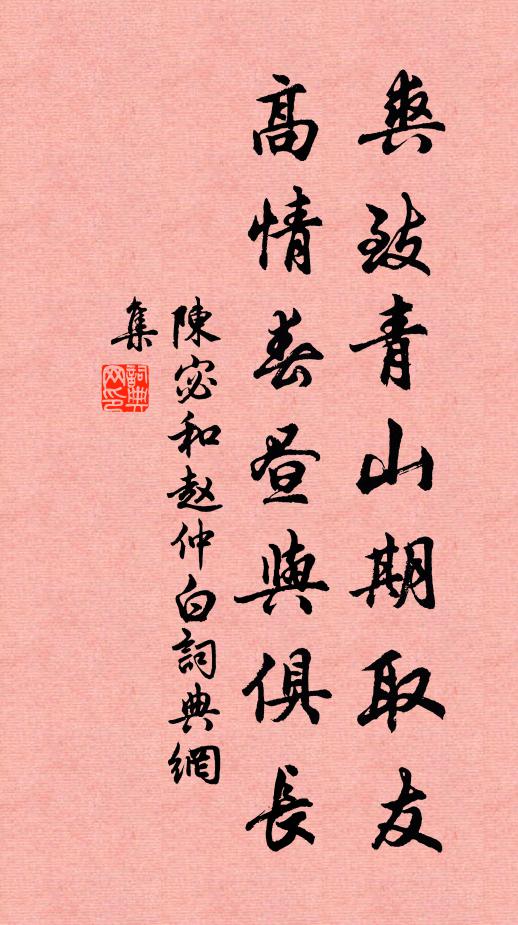 爽致青山期取友
高情春昼與俱長
陳宓和赵仲白詞典網
集
詞典网印